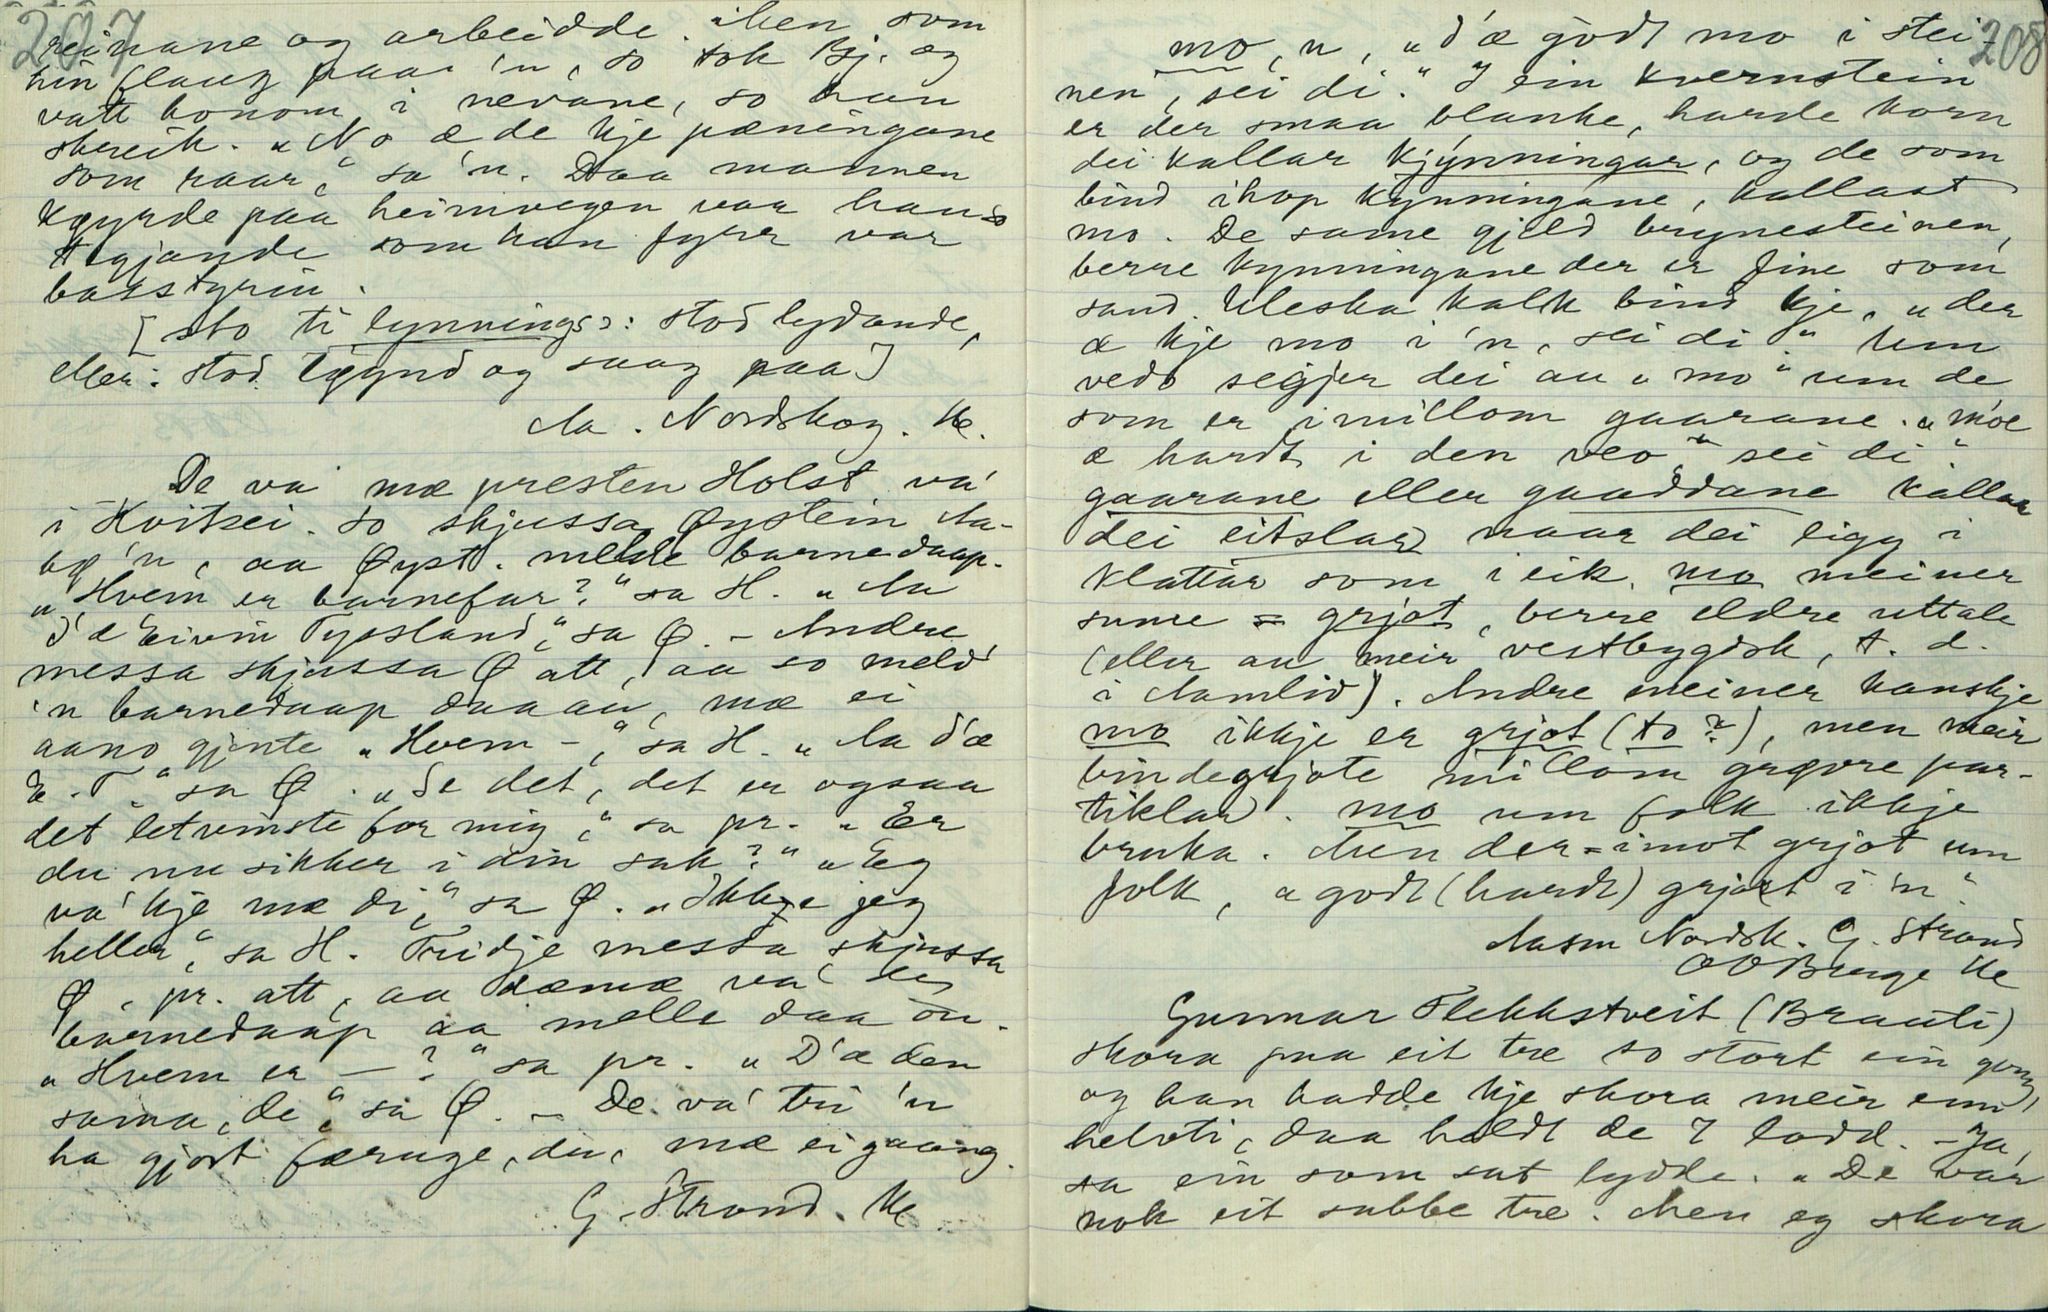 207
reinane og arbeidde. Men som
hin flaug paa 'n, so tok Bj. og
vatt honom i nevane, so han
skreik. "No æ de kje pæningane
som raar," sa 'n. Daa mannen
køyrde paa heimvegen var han so
tegjande som han fyrr var
basstyrin.
[sto ti lynnings: stod lydande,
eller: stod løynd og saag paa]
Aa. Nordskog. Kv.
De va mæ presten Holst va'
i Kvitsei. So skjussa Øystein Aa-
'n, aa Øyst. melde barnedaap.
"Hvem er barnefar?" sa H. "Aa
d'æ Eivin Tyssland," sa Ø. – Andre
messa skjussa Ø att, aa so meld
'n barnedaap daa au, mæ ei
aano gjente "Hvem –," sa H. "Aa d'æ
E. T." sa Ø. "Se det, det er ogsaa
det letvinste for mig," sa pr. "Er
du nu sikker i din sak?" "Eg
va' kje mæ di," sa Ø. "Ikkje jeg
heller," sa H. Tridje messa skjussa
Ø. pr. att, aa dæmæ va'
barnedaap aa melle daa au.
"Hvem er –?" sa pr. "D'æ den
sama, de," sa Ø. – De va' tri 'n
ha gjort færuge, du, mæ ei gaang.
G. Strond. Kv.
208
mo, n, "d'æ godt mo i stei-
nen, sei di." I ein kvernstein
er der smaa blanke, harde korn
dei kallar kjynningar, og de som
bind ihop kynningane, kallast
mo. De same gjeld brynesteinen,
berre kynningane der er fine som
sand. Uleska kalk bind kje, "der
æ kje mo i 'n, sei di". Um
ved segjer dei au "mo" um de
som er imillom gaarane. "Moe
æ hardt i den veo" sei di".
gaarane eller gaaddane kallar
dei eitslar naar dei ligg i
klattar som i eik. mo meiner
sume = grjot, berre eldre uttale
(eller au meir vestbygdsk, t. d.
i Aamlid). Andre meiner kanskje
mo ikkje er grjot (to?), men meir
bindegrjote millom grøvre par-
tiklar. mo um folk ikkje
bruka. Men der=imot grjot um
folk, "godt (hardt) grjot i 'n".
Aasm Nordsk. G. Strond
O O Berge Kv
Gunnar Flekkstveit (Brauti)
skora paa eit tre so stort ein gong,
og han hadde kje skora meir enn
helvti, daa heldt de 7 lodd. – Ja,
sa ein som sat lydde. "De var
nok eit subbe tre. Men eg skora